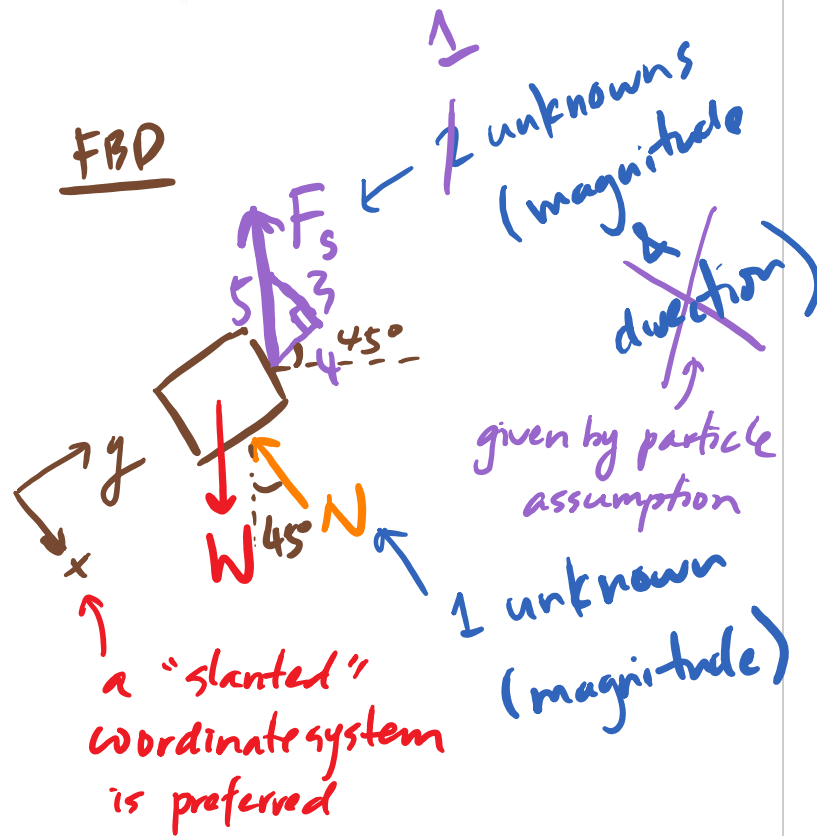 1
FBD
2 unknowns
(magnitude
&
direction)
Fs
5
3
4
45°
given by particle
assumption
y
x
W
45°
N
1 unknown
(magnitude)
a "slanted"
coordinate system
is preferred